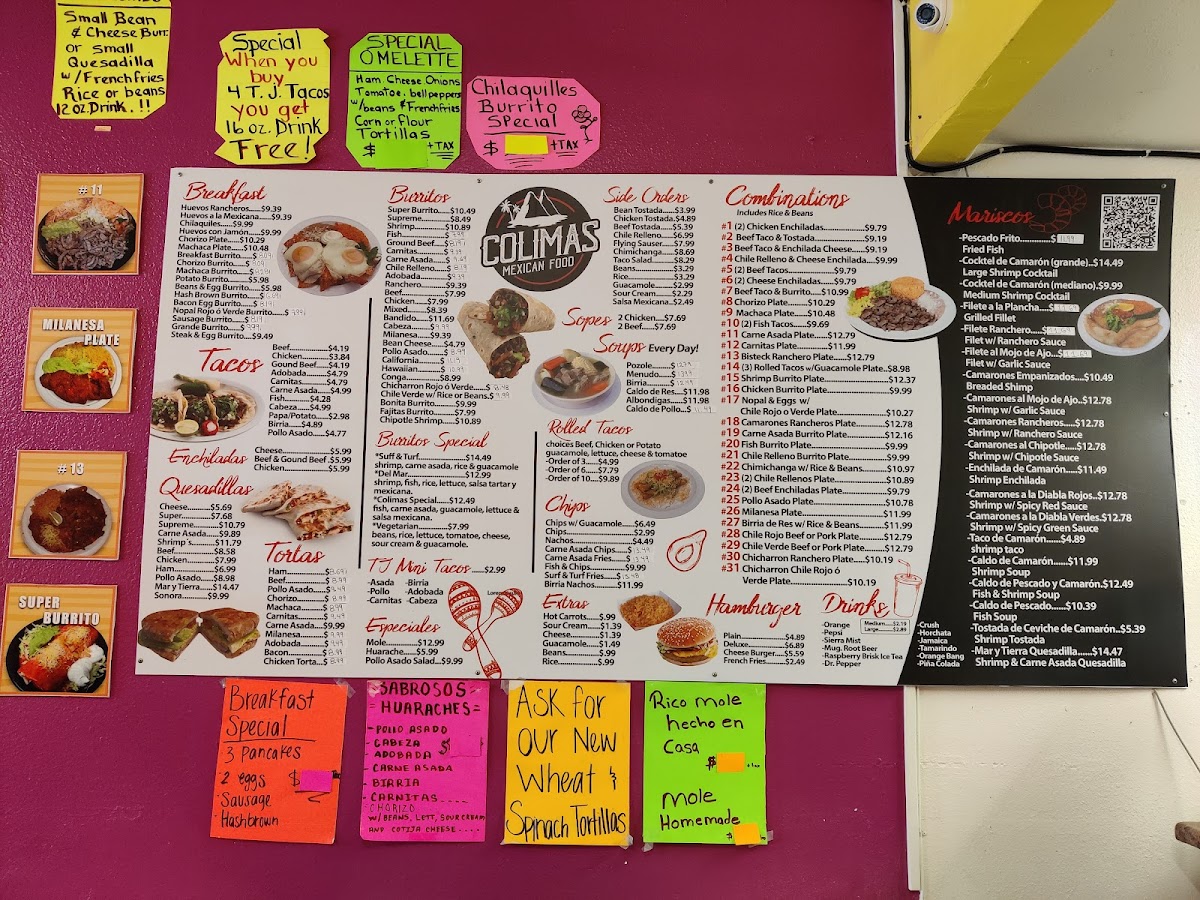 Small Bean
& Cheese Burr.
or Small
Quesadilla
w/Frenchfries
Rice or beans
12 oz. Drink. !!
Special
When you
buy
4 T.J. Tacos
you get
16 oz. Drink
Free!
SPECIAL
OMELETTE
Ham. Cheese. Onions
Tomatoe. bell peppers
w/beans & Frenchfries
Corn or flour
Tortillas
$ +TAX
Chilaquilles
Burrito
Special
$ +TAX
#11
MILANESA
PLATE
#13
SUPER
BURRITO
Breakfast
Huevos Rancheros......$9.39
Huevos a la Mexicana......$9.39
Chilaquiles......$9.99
Huevos con Jamón......$9.99
Chorizo Plate......$10.29
Machaca Plate......$10.48
Breakfast Burrito......$
Chorizo Burrito......$
Machaca Burrito......$
Potato Burrito......$5.98
Beans & Egg Burrito......$5.98
Hash Brown Burrito......$
Bacon Egg Burrito......$
Nopal Rojo ó Verde Burrito......$
Sausage Burrito......$
Grande Burrito......$
Steak & Egg Burrito......$9.49
Tacos
Beef......$4.19
Chicken......$3.84
Gound Beef......$4.19
Adobada......$4.79
Carnitas......$4.79
Carne Asada......$4.99
Fish......$4.28
Cabeza......$4.99
Papa/Potato......$2.98
Birria......$4.89
Pollo Asado......$4.77
Enchiladas
Cheese......$5.99
Beef & Gound Beef......$5.99
Chicken......$5.99
Quesadillas
Cheese......$5.69
Super......$7.68
Supreme......$10.79
Carne Asada......$9.89
Shrimp's......$11.79
Beef......$8.58
Chicken......$7.99
Ham......$6.99
Pollo Asado......$8.98
Mar y Tierra......$14.47
Sonora......$9.99
Tortas
Ham......$
Beef......$
Pollo Asado......$
Chorizo......$
Machaca......$
Carnitas......$
Carne Asada......$9.99
Milanesa......$
Adobada......$
Bacon......$
Chicken Torta......$
Burritos
Super Burrito......$10.49
Supreme......$8.49
Shrimp......$10.89
Fish......$
Ground Beef......$
Carnitas......$
Carne Asada......$
Chile Relleno......$
Adobada......$
Ranchero......$9.39
Beef......$7.99
Chicken......$7.99
Mixed......$8.39
Bandido......$11.69
Cabeza......$
Milanesa......$9.39
Bean Cheese......$4.79
Pollo Asado......$
California......$
Hawaiian......$
Conga......$8.99
Chicharron Rojo ó Verde......$
Chile Verde w/ Rice or Beans.$
Bonita Burrito......$9.99
Fajitas Burrito......$7.99
Chipotle Shrimp......$10.89
Burritos Special
*Suff & Turf......$14.49
shrimp, carne asada, rice & guacamole
*Del Mar......$12.99
shrimp, fish, rice, lettuce, salsa tartar y
mexicana.
*Colimas Special......$12.49
fish, carne asada, guacamole, lettuce &
salsa mexicana.
*Vegetarian......$7.99
beans, rice, lettuce, tomatoe, cheese,
sour cream & guacamole.
TJ Mini Tacos......$2.99
-Asada -Birria
-Pollo -Adobada
-Carnitas -Cabeza
Especiales
Mole......$12.99
Huarache......$5.99
Pollo Asado Salad......$9.99
COLIMAS
MEXICAN FOOD
Side Orders
Bean Tostada......$3.99
Chicken Tostada......$4.89
Beef Tostada......$5.39
Chile Relleno......$6.99
Flying Sauser......$7.99
Chimichanga......$8.69
Taco Salad......$8.29
Beans......$3.29
Rice......$3.29
Guacamole......$2.99
Sour Cream......$2.29
Salsa Mexicana......$2.49
Sopes
2 Chicken......$7.69
2 Beef......$7.69
Soups Every Day!
Pozole......$
Menudo......$
Birria......$
Caldo de Res......$11.98
Albondigas......$11.98
Caldo de Pollo......$
Rolled Tacos
choices Beef, Chicken or Potato
guacamole, lettuce, cheese & tomatoe
-Order of 3......$4.99
-Order of 6......$7.79
-Order of 10......$9.89
Chips
Chips w/ Guacamole......$6.49
Chips......$2.99
Nachos......$4.49
Carne Asada Chips......$
Carne Asada Fries......$
Fish & Chips......$9.99
Surf & Turf Fries......$
Birria Nachos......$11.99
Extras
Hot Carrots......$.99
Sour Cream......$1.39
Cheese......$1.39
Guacamole......$1.49
Beans......$.99
Rice......$.99
Combinations
Includes Rice & Beans
#1 (2) Chicken Enchiladas......$9.79
#2 Beef Taco & Tostada......$9.19
#3 Beef Taco & Enchilada Cheese......$9.19
#4 Chile Relleno & Cheese Enchilada......$9.99
#5 (2) Beef Tacos......$9.79
#6 (2) Cheese Enchiladas......$9.79
#7 Beef Taco & Burrito......$10.99
#8 Chorizo Plate......$10.29
#9 Machaca Plate......$10.48
#10 (2) Fish Tacos......$9.69
#11 Carne Asada Plate......$12.79
#12 Carnitas Plate......$11.99
#13 Bisteck Ranchero Plate......$12.79
#14 (3) Rolled Tacos w/Guacamole Plate...$8.98
#15 Shrimp Burrito Plate......$12.37
#16 Chicken Burrito Plate......$9.99
#17 Nopal & Eggs w/
Chile Rojo o Verde Plate......$10.27
#18 Camarones Rancheros Plate......$12.78
#19 Carne Asada Burrito Plate......$12.16
#20 Fish Burrito Plate......$9.99
#21 Chile Relleno Burrito Plate......$9.99
#22 Chimichanga w/ Rice & Beans......$10.97
#23 (2) Chile Rellenos Plate......$10.89
#24 (2) Beef Enchiladas Plate......$9.79
#25 Pollo Asado Plate......$10.78
#26 Milanesa Plate......$11.99
#27 Birria de Res w/ Rice & Beans......$11.99
#28 Chile Rojo Beef or Pork Plate......$12.79
#29 Chile Verde Beef or Pork Plate......$12.79
#30 Chicharron Ranchero Plate......$10.19
#31 Chicharron Chile Rojo ó
Verde Plate......$10.19
Hamburger
Plain......$4.89
Deluxe......$6.89
Cheese Burger......$5.59
French Fries......$2.49
Drinks
Medium......$2.19
Large......$2.89
-Orange
-Pepsi
-Sierra Mist
-Mug. Root Beer
-Raspberry Brisk Ice Tea
-Dr. Pepper
-Crush
-Horchata
-Jamaica
-Tamarindo
-Orange Bang
-Piña Colada
Mariscos
-Pescado Frito......$
Fried Fish
-Cocktel de Camarón (grande)..$14.49
Large Shrimp Cocktail
-Cocktel de Camarón (mediano).$9.99
Medium Shrimp Cocktail
-Filete a la Plancha......$
Grilled Fillet
-Filete Ranchero......$
Filet w/ Ranchero Sauce
-Filete al Mojo de Ajo...$
Filet w/ Garlic Sauce
-Camarones Empanizados......$10.49
Breaded Shimp
-Camarones al Mojo de Ajo..$12.78
Shrimp w/ Garlic Sauce
-Camarones Rancheros......$12.78
Shrimp w/ Ranchero Sauce
-Camarones al Chipotle......$12.78
Shrimp w/ Chipotle Sauce
-Enchilada de Camarón......$11.49
Shrimp Enchilada
-Camarones a la Diabla Rojos..$12.78
Shrimp w/ Spicy Red Sauce
-Camarones a la Diabla Verdes.$12.78
Shrimp w/ Spicy Green Sauce
-Taco de Camarón......$4.89
shrimp taco
-Caldo de Camarón......$11.99
Shrimp Soup
-Caldo de Pescado y Camarón.$12.49
Fish & Shrimp Soup
-Caldo de Pescado......$10.39
Fish Soup
-Tostada de Ceviche de Camarón..$5.39
Shrimp Tostada
-Mar y Tierra Quesadilla......$14.47
Shrimp & Carne Asada Quesadilla
Breakfast
Special
3 Pancakes
2 eggs $
Sausage
Hashbrown
SABROSOS
=HUARACHES=
-POLLO ASADO
-CABEZA $
ADOBADA
-CARNE ASADA
-BIRRIA
-CARNITAS....
-CHORIZO
W/BEANS, LETT, SOUR CREAM
AND COTIJA CHEESE....
ASK for
our New
Wheat &
Spinach Tortillas
Rico mole
hecho en
Casa
$ +tax
Mole
Homemade
$